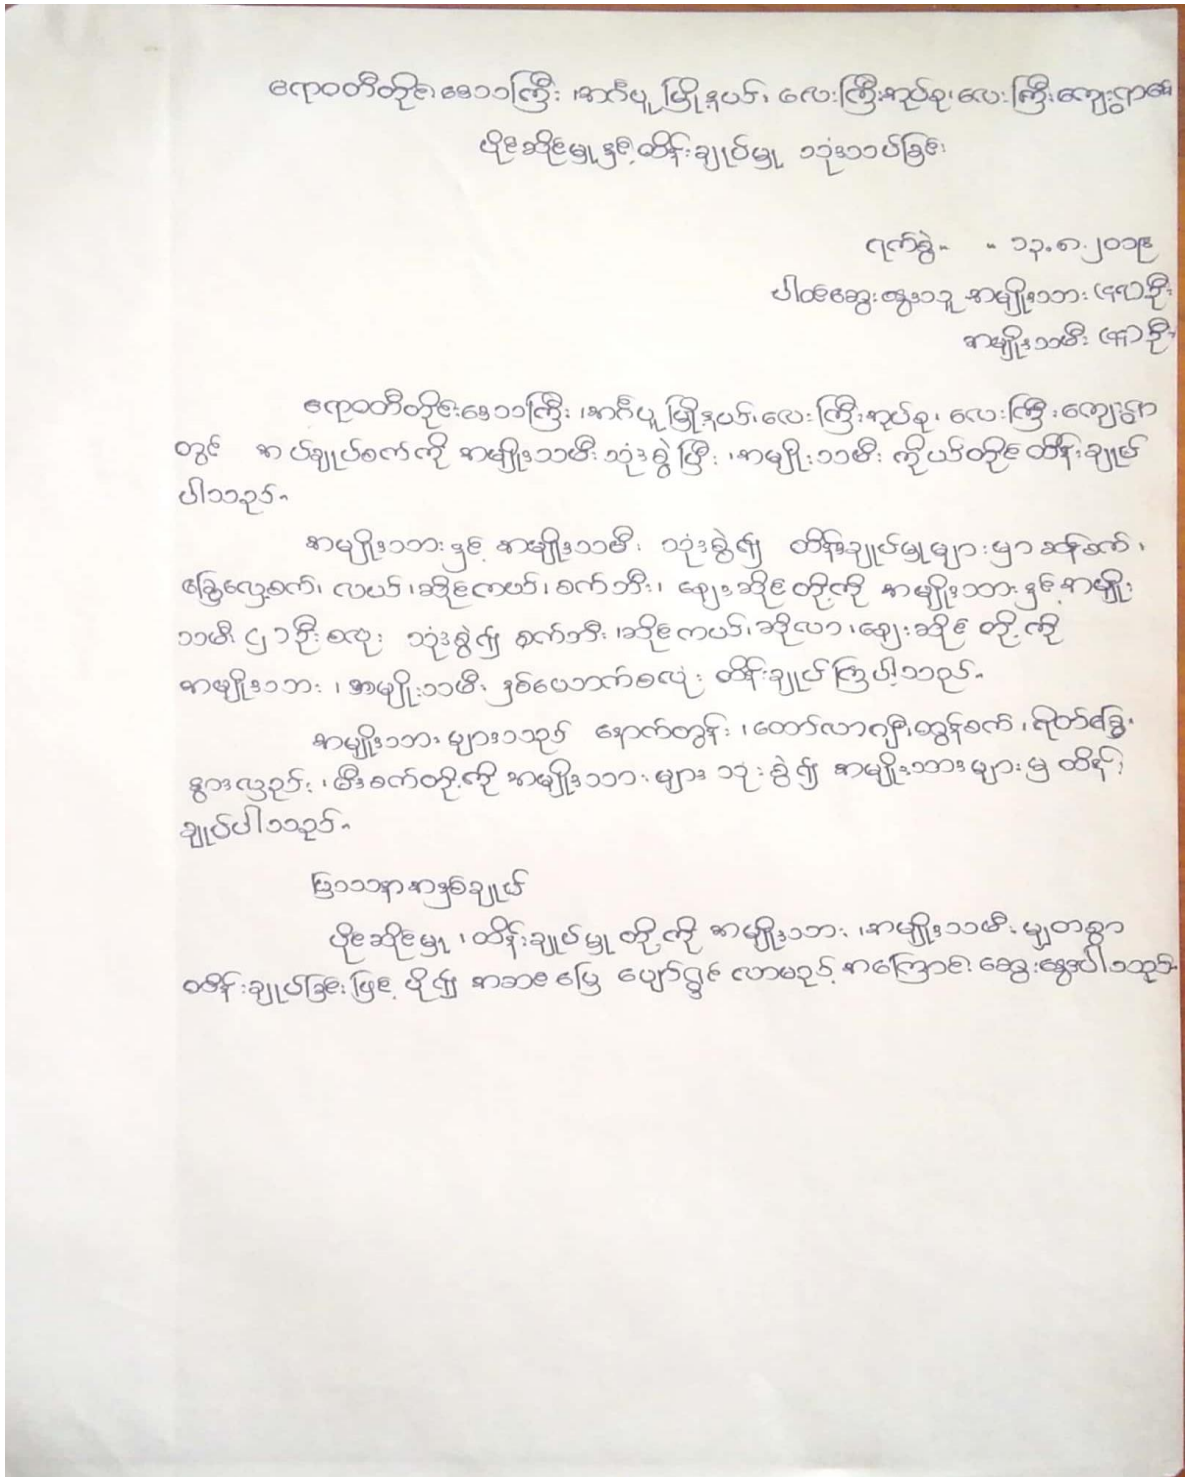 ဧရာဝတီတိုင်းဒေသကြီး ၊အင်္ဂပူမြို့နယ်၊ လေးကြီးအုပ်စု၊လေးကြီးကျေးရွာ၏
ပိုင်ဆိုင်မှုနှင့်ထိန်းချုပ်မှု သုံးသပ်ခြင်း
ရက်စွဲ - ၁၃.၈.၂၀၁၉
ပါဝင်ဆွေးနွေးသူ အမျိုးသား ဦး
အမျိုးသမီး ဦး
ဧရာဝတီတိုင်းဒေသကြီး ၊အင်္ဂပူမြို့နယ်၊လေးကြီးအုပ်စု၊ လေးကြီးကျေးရွာ
တွင် အပ်ချုပ်စက်ကို အမျိုးသမီးသုံးစွဲပြီး ၊အမျိုးသမီး ကိုယ်တိုင်ထိန်းချုပ်
ပါသည်။
အမျိုးသားနှင့် အမျိုးသမီး သုံးစွဲ၍ ထိန်းချုပ်မှုများမှာဆန်စက်၊
ခြွေလှေ့စက်၊ လယ်၊ဆိုင်ကယ်၊စက်ဘီး၊ ဈေးဆိုင်တို့ကို အမျိုးသားနှင့်အမျိုး
သမီး ၂ ဦးစလုံး သုံးစွဲ၍ စက်ဘီး ၊ဆိုင်ကယ်၊ဆိုလာ၊ဈေးဆိုင် တို့ကို
အမျိုးသား ၊အမျိုးသမီး နှစ်ယောက်စလုံး ထိန်းချုပ်ကြပါသည်။
အမျိုးသားများသည် နောက်တွန်း ၊ထော်လာဂျီ၊ထွန်စက်၊ရိတ်ခြွေ၊
နွားလှည်း၊မီးစက်တို့ကို အမျိုးသားများ သုံးစွဲ၍ အမျိုးသားများမှ ထိန်း
ချုပ်ပါသည်။
ပြဿနာအနှစ်ချုပ်
ပိုင်ဆိုင်မှု ၊ထိန်းချုပ်မှု တို့ကို အမျိုးသား ၊အမျိုးသမီး မျှတစွာ
ထိန်းချုပ်ခြင်းဖြင့် ပို၍ အဆင်ပြေ ပျော်ရွှင် လာမည့် အကြောင်း ဆွေးနွေးပါသည်။